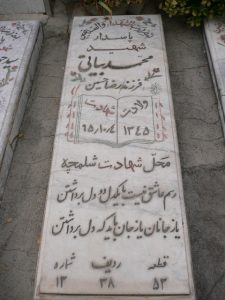 پاسدار
شهید
محمد بیاتی
فرزند رضا حسین
ولادت شهادت
۱۳۴۵ ۶۵/۱۰/۴
محل شهادت شلمچه
رسم عاشق نیست با یکدل دو دل برداشتن
یا ز جانان یا ز جان باید که دل برداشتن
قطعه ردیف شماره
۵۳ ۳۸ ۱۳